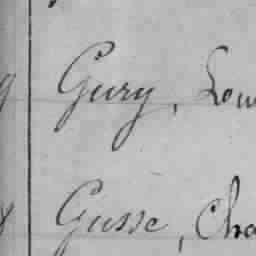 Gury, Lou
Gusse, Cha